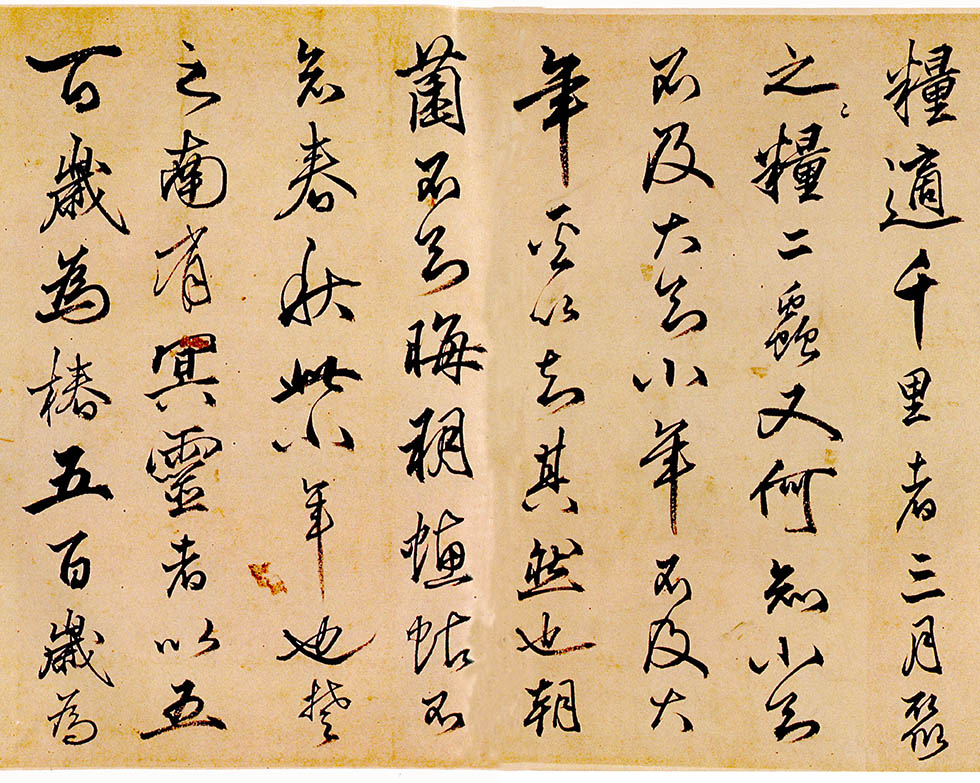 糧適千里者三月聚
之糧二蟲又何知小知
不及大知小年不及大
年奚以知其然也朝
菌不知晦朔蟪蛄不
知春秋此小年也楚
之南有冥靈者以五
百歲為椿五百歲為